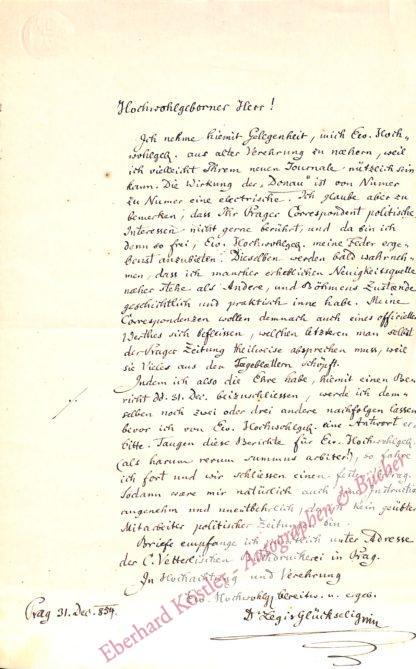 Hochwohlgeborner Herr!
Ich nehme hiemit Gelegenheit, mich Ew. Hoch-
wohlgeb. aus alter Verehrung zu næhern, weil
ich vielleicht Ihrem neuen Journale nützlich sein
kann. Die Wirkung der „Donau" ist von Numer
zu Numer eine electrische. Ich glaube aber zu
bemerken, dass Ihr Prager Correspondent politische
Interessen nicht gerne berührt, und da bin ich
denn so frei, Ew. Hochwohlgeb. meine Feder erge-
benst anzubieten. Dieselben werden bald wahrneh-
men, dass ich mancher erheblichen Neuigkeitsquelle
næher stehe als Andere, und Böhmens Zustände
geschichtlich und praktisch inne habe. Meine
Correspondenzen wollen demnach auch eines officiellen
Werthes sich befleissen, welchen letztern man selbst
der Prager Zeitung theilweise absprechen muss, weil
sie Vieles aus den Tageblättern schöpft.
Indem ich also die Ehre habe, hiemit einen Be-
richt dd. 31. Dec. beizuschliessen, werde ich dem-
selben noch zwei oder drei andere nachfolgen lassen,
bevor ich von Ew. Hochwohlgeb. eine Antwort er-
bitte. Taugen diese Berichte für Ew. Hochwohlgeb.
(als harum rerum summus arbiter!), so fahre
ich fort und wir schliessen einen
Sodann wäre mir natürlich auch Instruction
angenehm und unentbehrlich, kein geübter
Mitarbeiter politischer Zeitungen bin.
Briefe empfange ich unter Adresse
der C. Vetterlischen Buchdruckerei in Prag.
In Hochachtung und Verehrung
Ew. Hochwohlgb bereitw. u. ergeb.
Prag 31. Dec. 854. Dr Legis Glückselig
Eberhard Köstler Autographen & Bücher